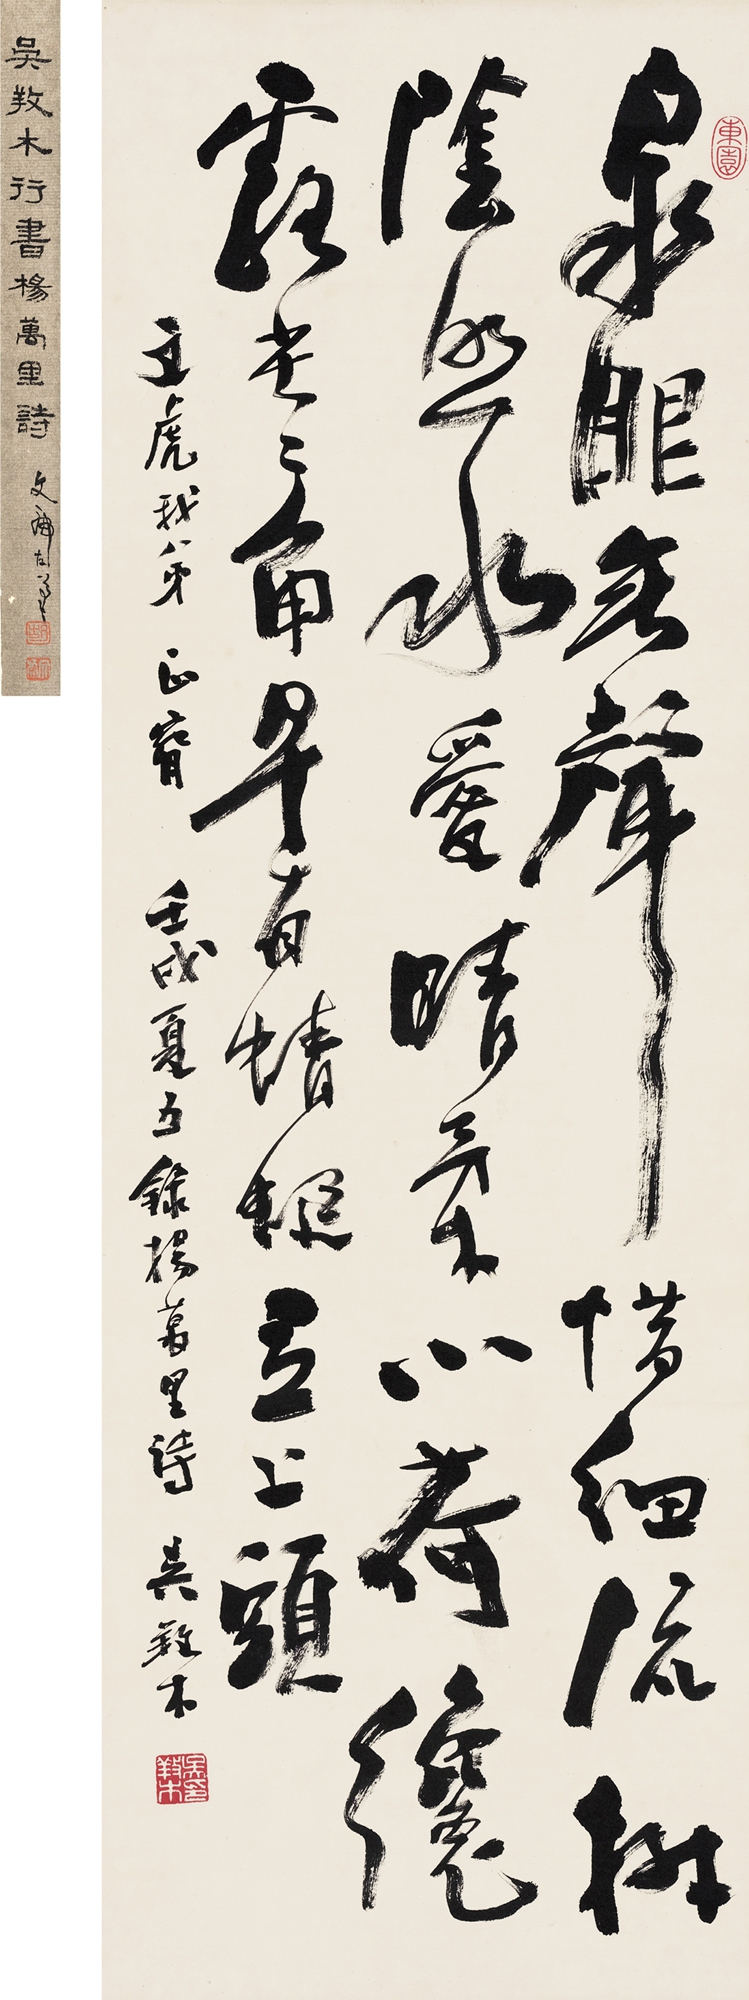 吳羖木行書楊萬里詩
東園
泉眼無聲惜細流樹
陰照水愛晴柔小荷纔
露尖々角早有蜻蜓立上頭
文虎我 正 壬戌夏五錄楊萬里詩 吳羖木
吳羖木印